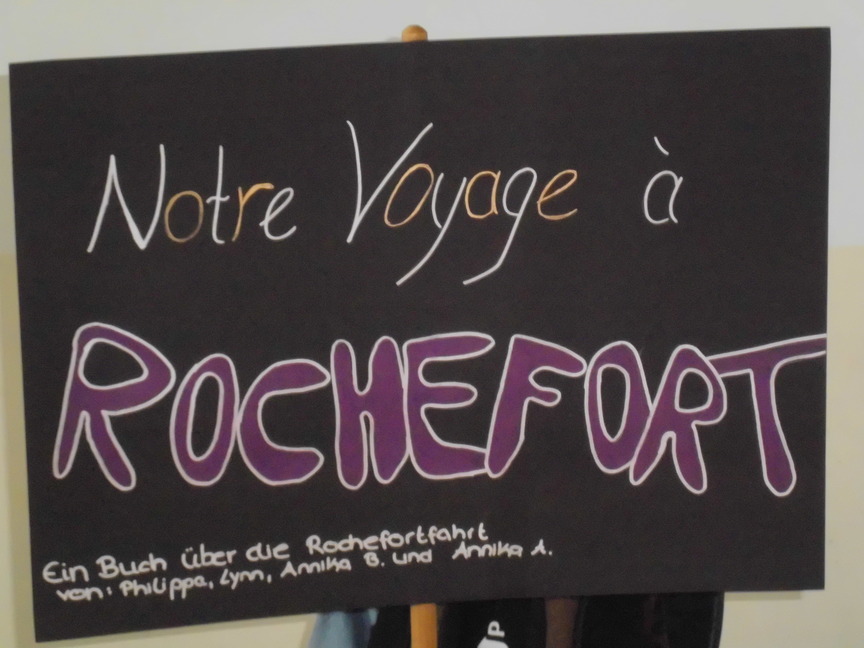 Notre Voyage à
ROCHEFORT
Ein Buch über die Rochefortfahrt
von: Philippa, Lynn, Annika B. und Annika A.
P